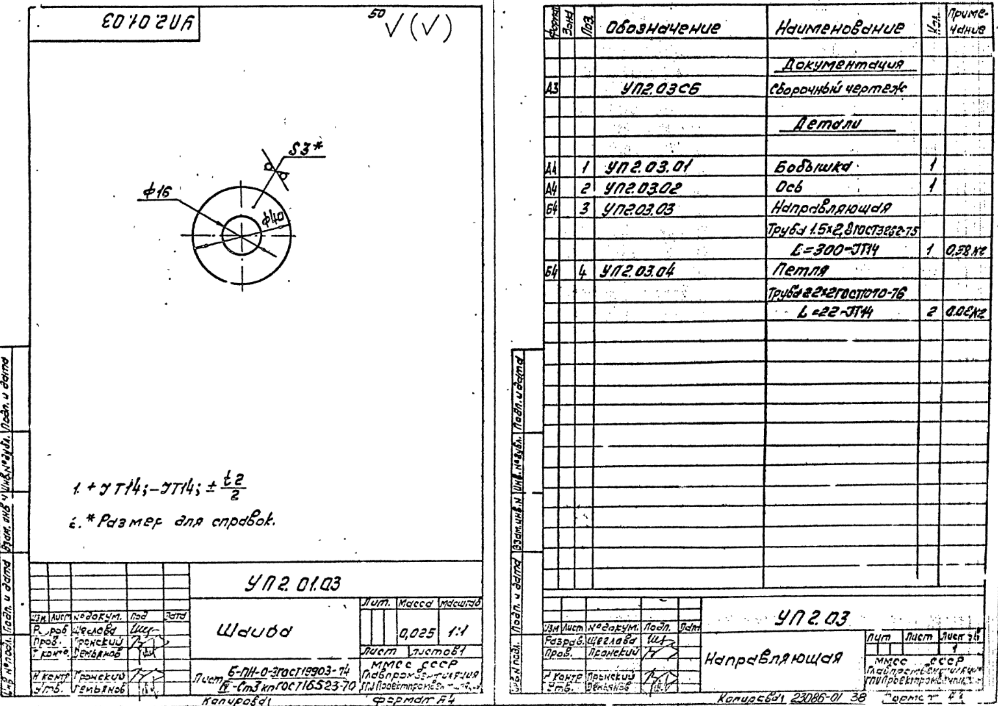 УП2.01.03
50 √ (√)
S3*
ф16
ф40
1. + JT14; -JT14; ± t2/2
2. * Размер для справок.
Подп. и дата
Взам. инв. №
Инв. № дубл.
Подп. и дата
УП2.01.03
Изм Лист № докум. Под Дата
Шайба
Лит. Масса Масштаб
0,025 1:1
Лист Листов 1
Пров. Пронский
Т. контр. Демьянов
Н контр Пронский
Утв. Демьянов
Лист Б-ПН-0-3 ГОСТ 19903-74
IV-Ст3 кп ГОСТ 16523-70
ММСС СССР
Копировал
Формат А4
Формат Зона Поз. Обозначение Наименование Кол. Примечание
Документация
А3 УП2.03СБ Сборочный чертеж
Детали
А4 1 УП2.03.01 Бобышка 1
А4 2 УП2.03.02 Ось 1
Б4 3 УП2.03.03 Направляющая
Труба 15х2,8 ГОСТ 3262-75
L=300-JT14 1 0,38 кг
Б4 4 УП2.03.04 Петля
Труба 22х2 ГОСТ 1070-76
L=22-JT14 2 0.02 кг
Подп. и дата
Инв. № дубл.
Взам. инв. №
Подп. и дата
Инв. № подл.
УП2.03
Изм Лист № докум. Подп. Дата
Разраб. Щеглова
Пров. Пронский
Н контр Пронский
Утв. Демьянов
Направляющая
Лит Лист Листов
1
ММСС СССР
Копировал 23086-01 38 Формат А4